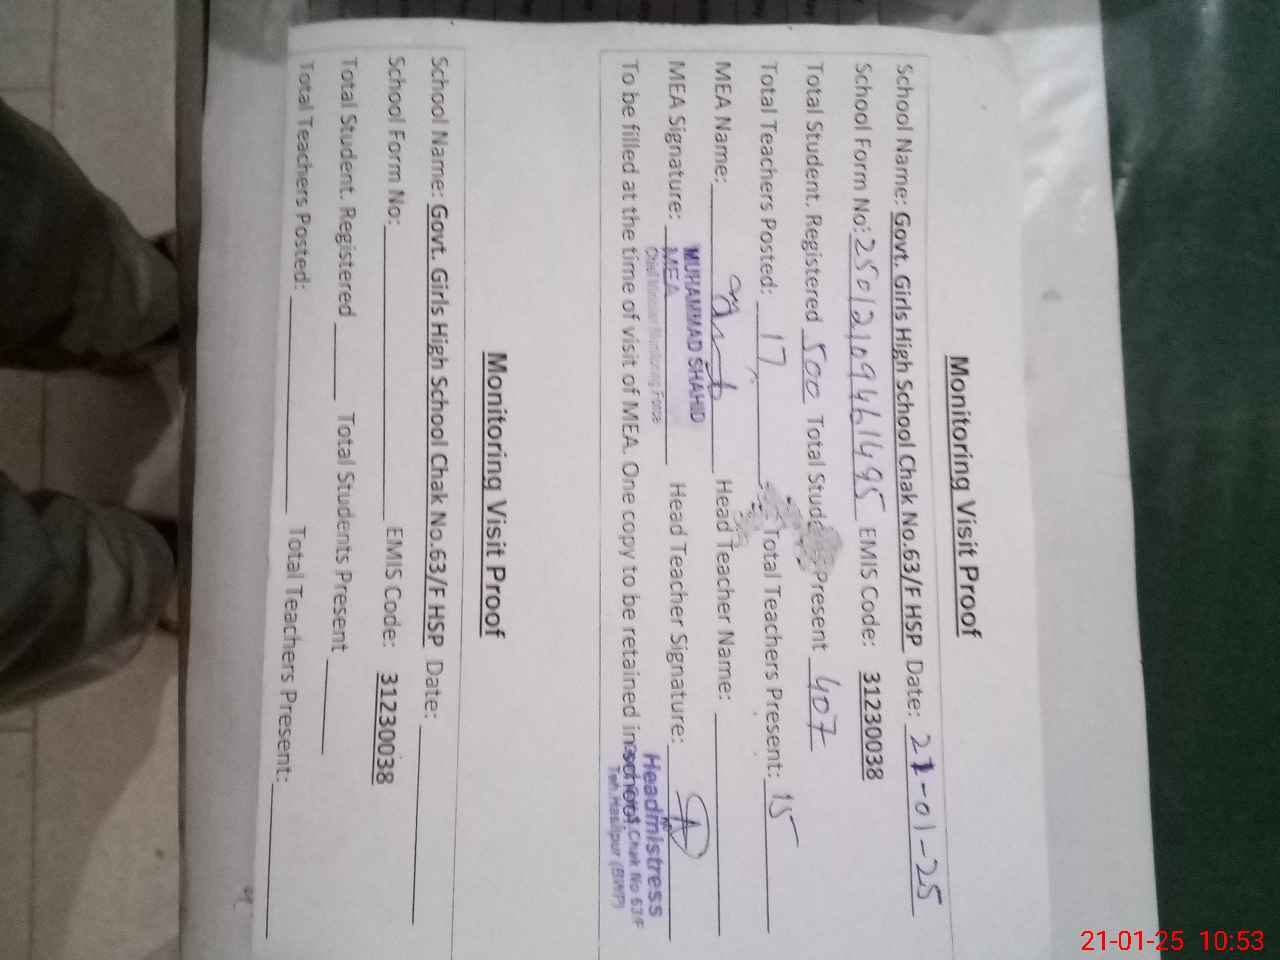 Monitoring Visit Proof
School Name: Govt. Girls High School Chak No.63/F HSP Date: 21-01-25
School Form No: 25012109461495 EMIS Code: 31230038
Total Student. Registered 500 Total Stude Present 407
Total Teachers Posted: 17 Total Teachers Present: 15
MEA Name: Head Teacher Name:
MUHAMMAD SHAHID
MEA Signature: MEA Head Teacher Signature:
Chief Minister Monitoring Force
Headmistress
To be filled at the time of visit of MEA. One copy to be retained in school
Chak No 63/F
Teh.Hasilpur (BWP)
Monitoring Visit Proof
School Name: Govt. Girls High School Chak No.63/F HSP Date:
School Form No: EMIS Code: 31230038
Total Student. Registered Total Students Present
Total Teachers Posted: Total Teachers Present:
21-01-25 10:53